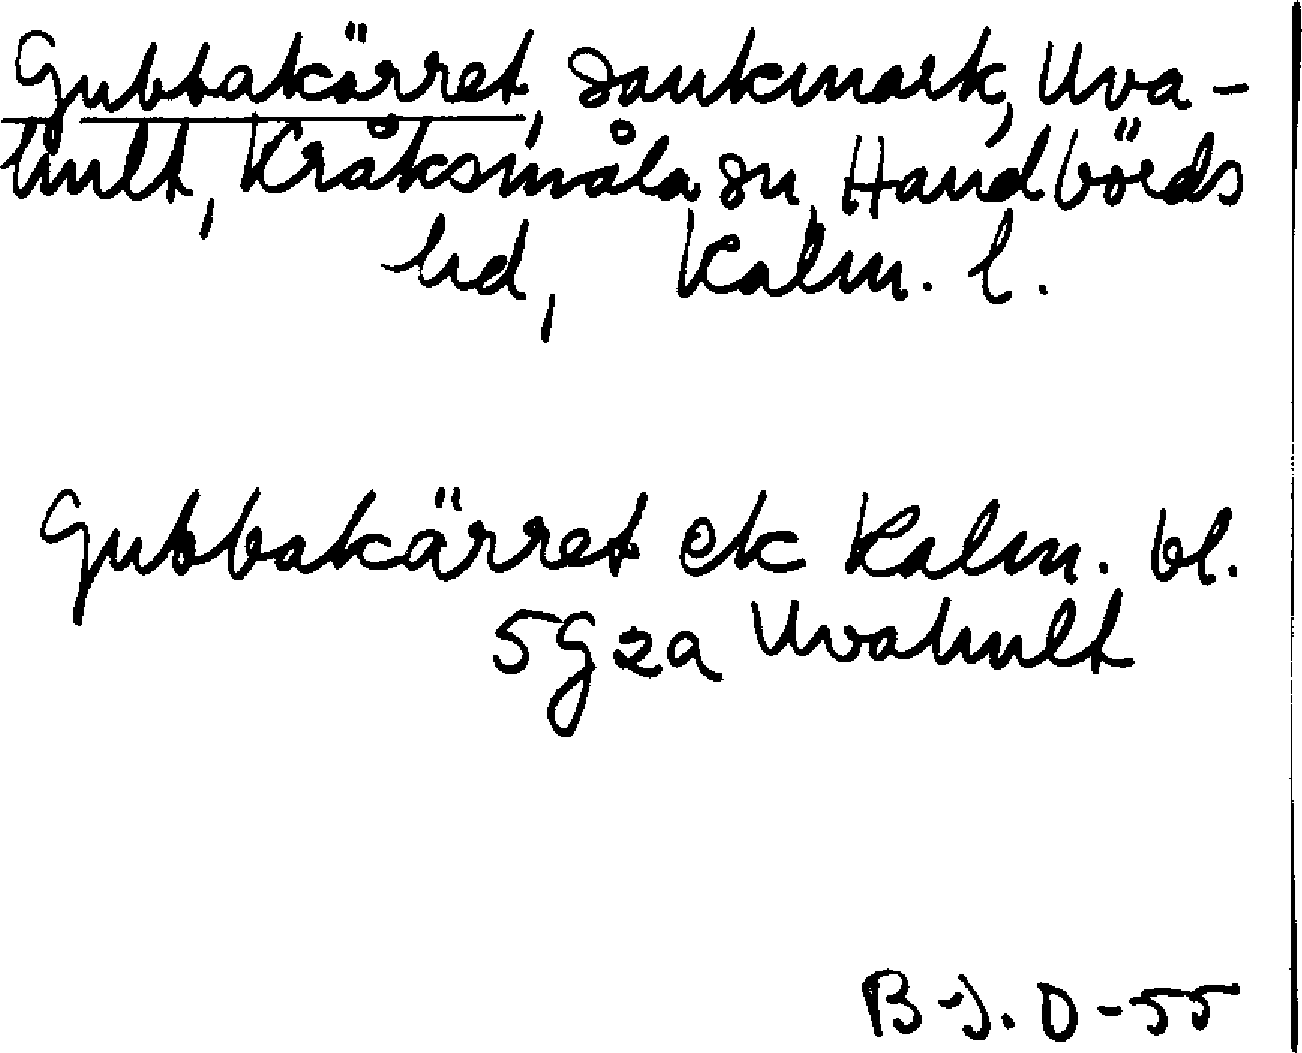 Gubbakärret, Sankmark, Uva-
hult, Kråksmåla sn, Handbörds
hd, Kalm. l.
Gubbakärret ek Kalm. bl.
5g2a Uvahult
B-J. O-55